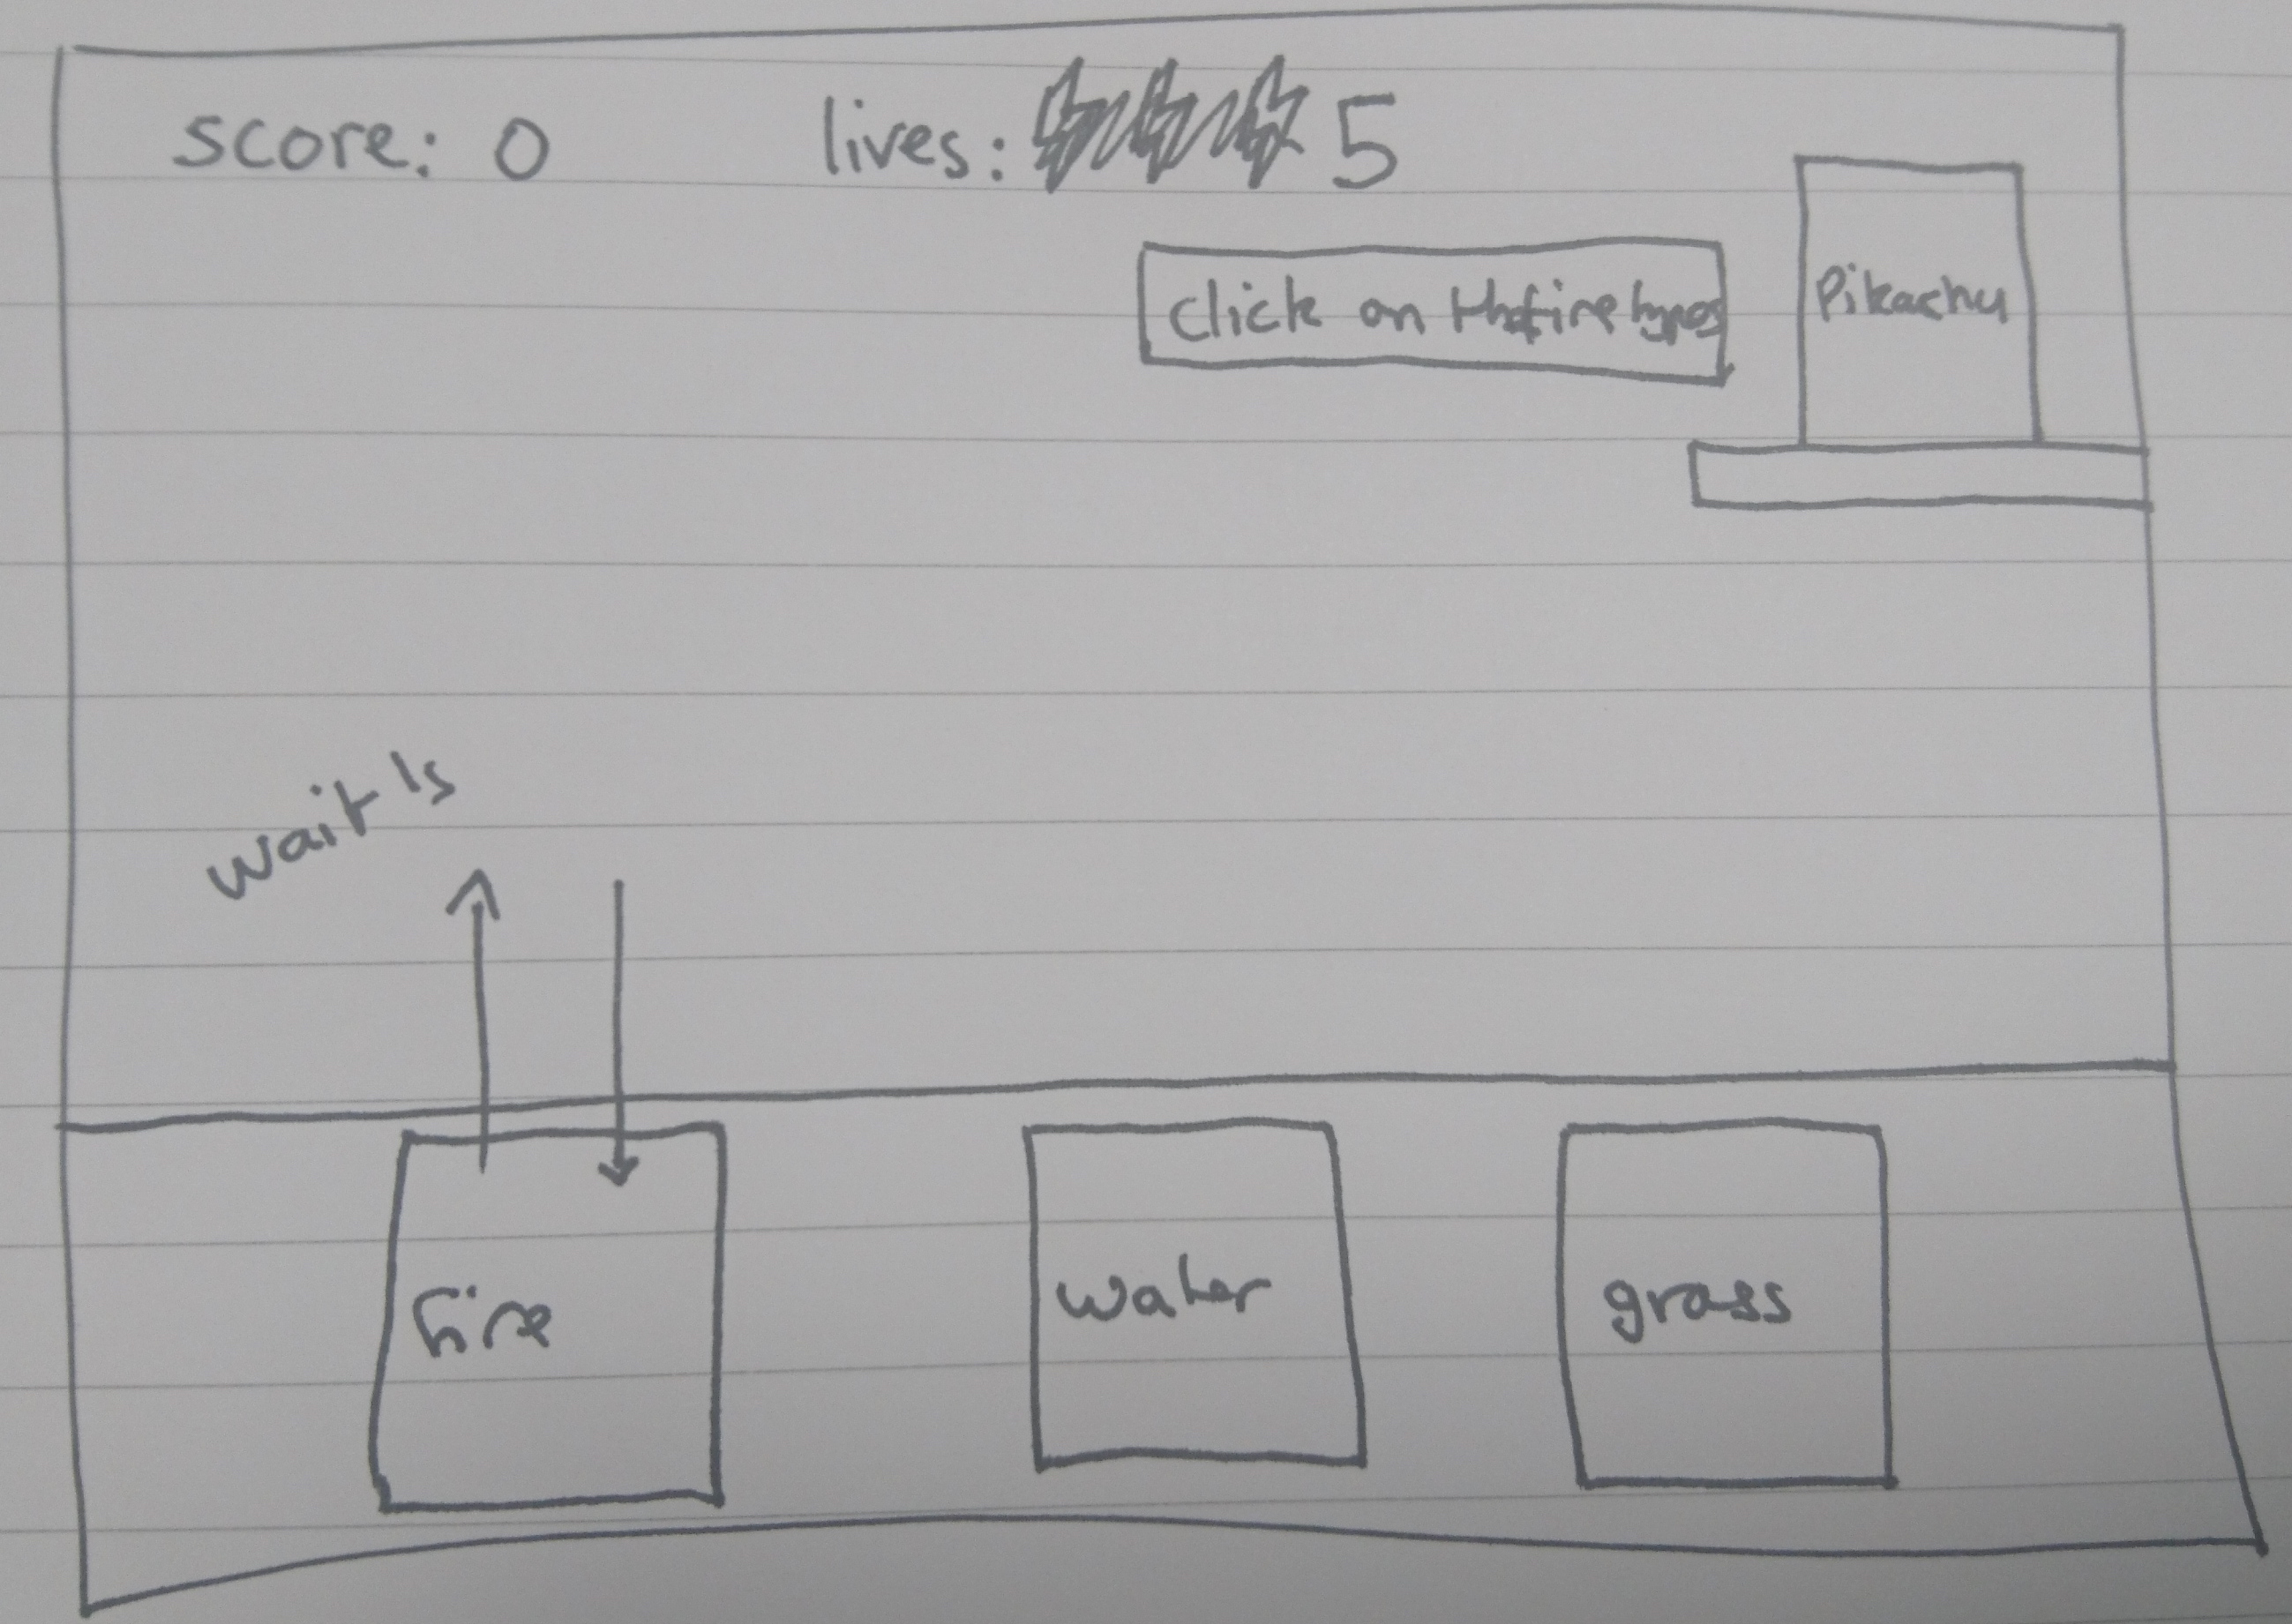 score: 0
lives: 5
click on the fire types
Pikachu
wait 1s
fire
water
grass